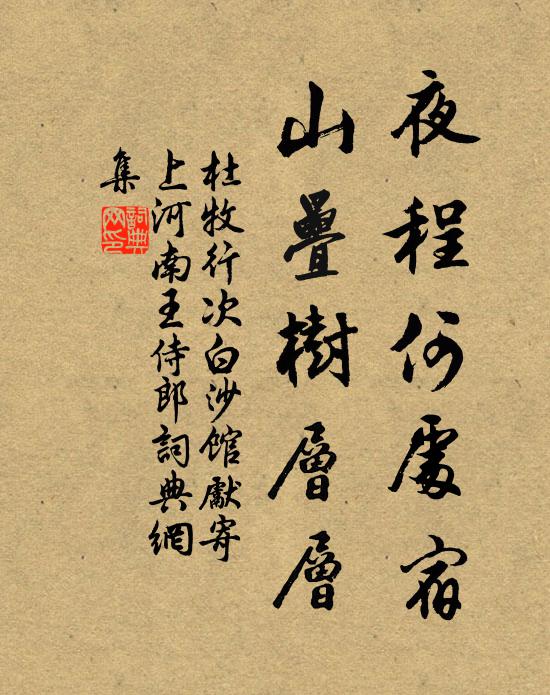 夜程何處宿
山疊樹層層
杜牧行次白沙館獻寄
上河南王侍郎詞典網
集
詞典
网印